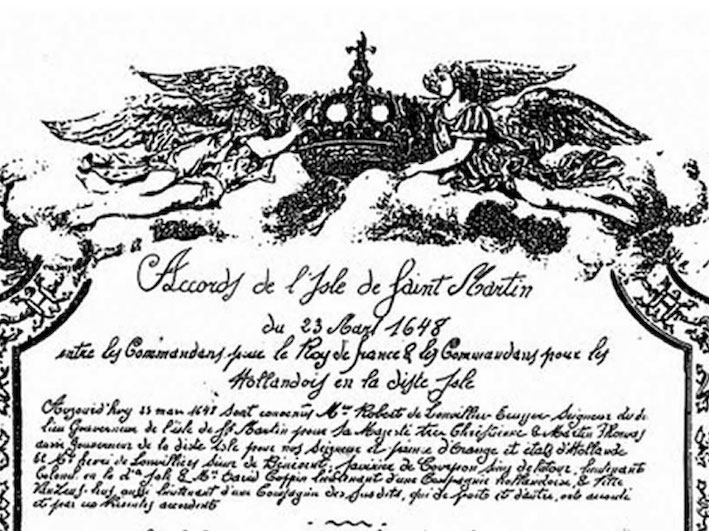 Accords de l'Isle de Saint Martin
du 23 Mars 1648
entre les Commandans pour le Roy de france & les Commandans pour les
Hollandois en la diste Isle
23 mars 1648 sont convenus Mrs Robert de Lonvillier Seigneur du dt
lieu Gouverneur de l'isle de St Martin pour sa Majesté tres Chrestienne & Martin Thomas
aussi Gouverneur de la diste Isle pour nos Seigneur et prince d'Orange et états d'Hollande
et Mr henri de Lonvilliers sieur de Benevent,
en la dte Isle & Mr David Coppin lieutenant d'une Compagnie hollandoise, &
aussi lieutenant d'une Compagnie des susdits, qui de parts et d'autre, ont accordé
et par ces présentes accordent